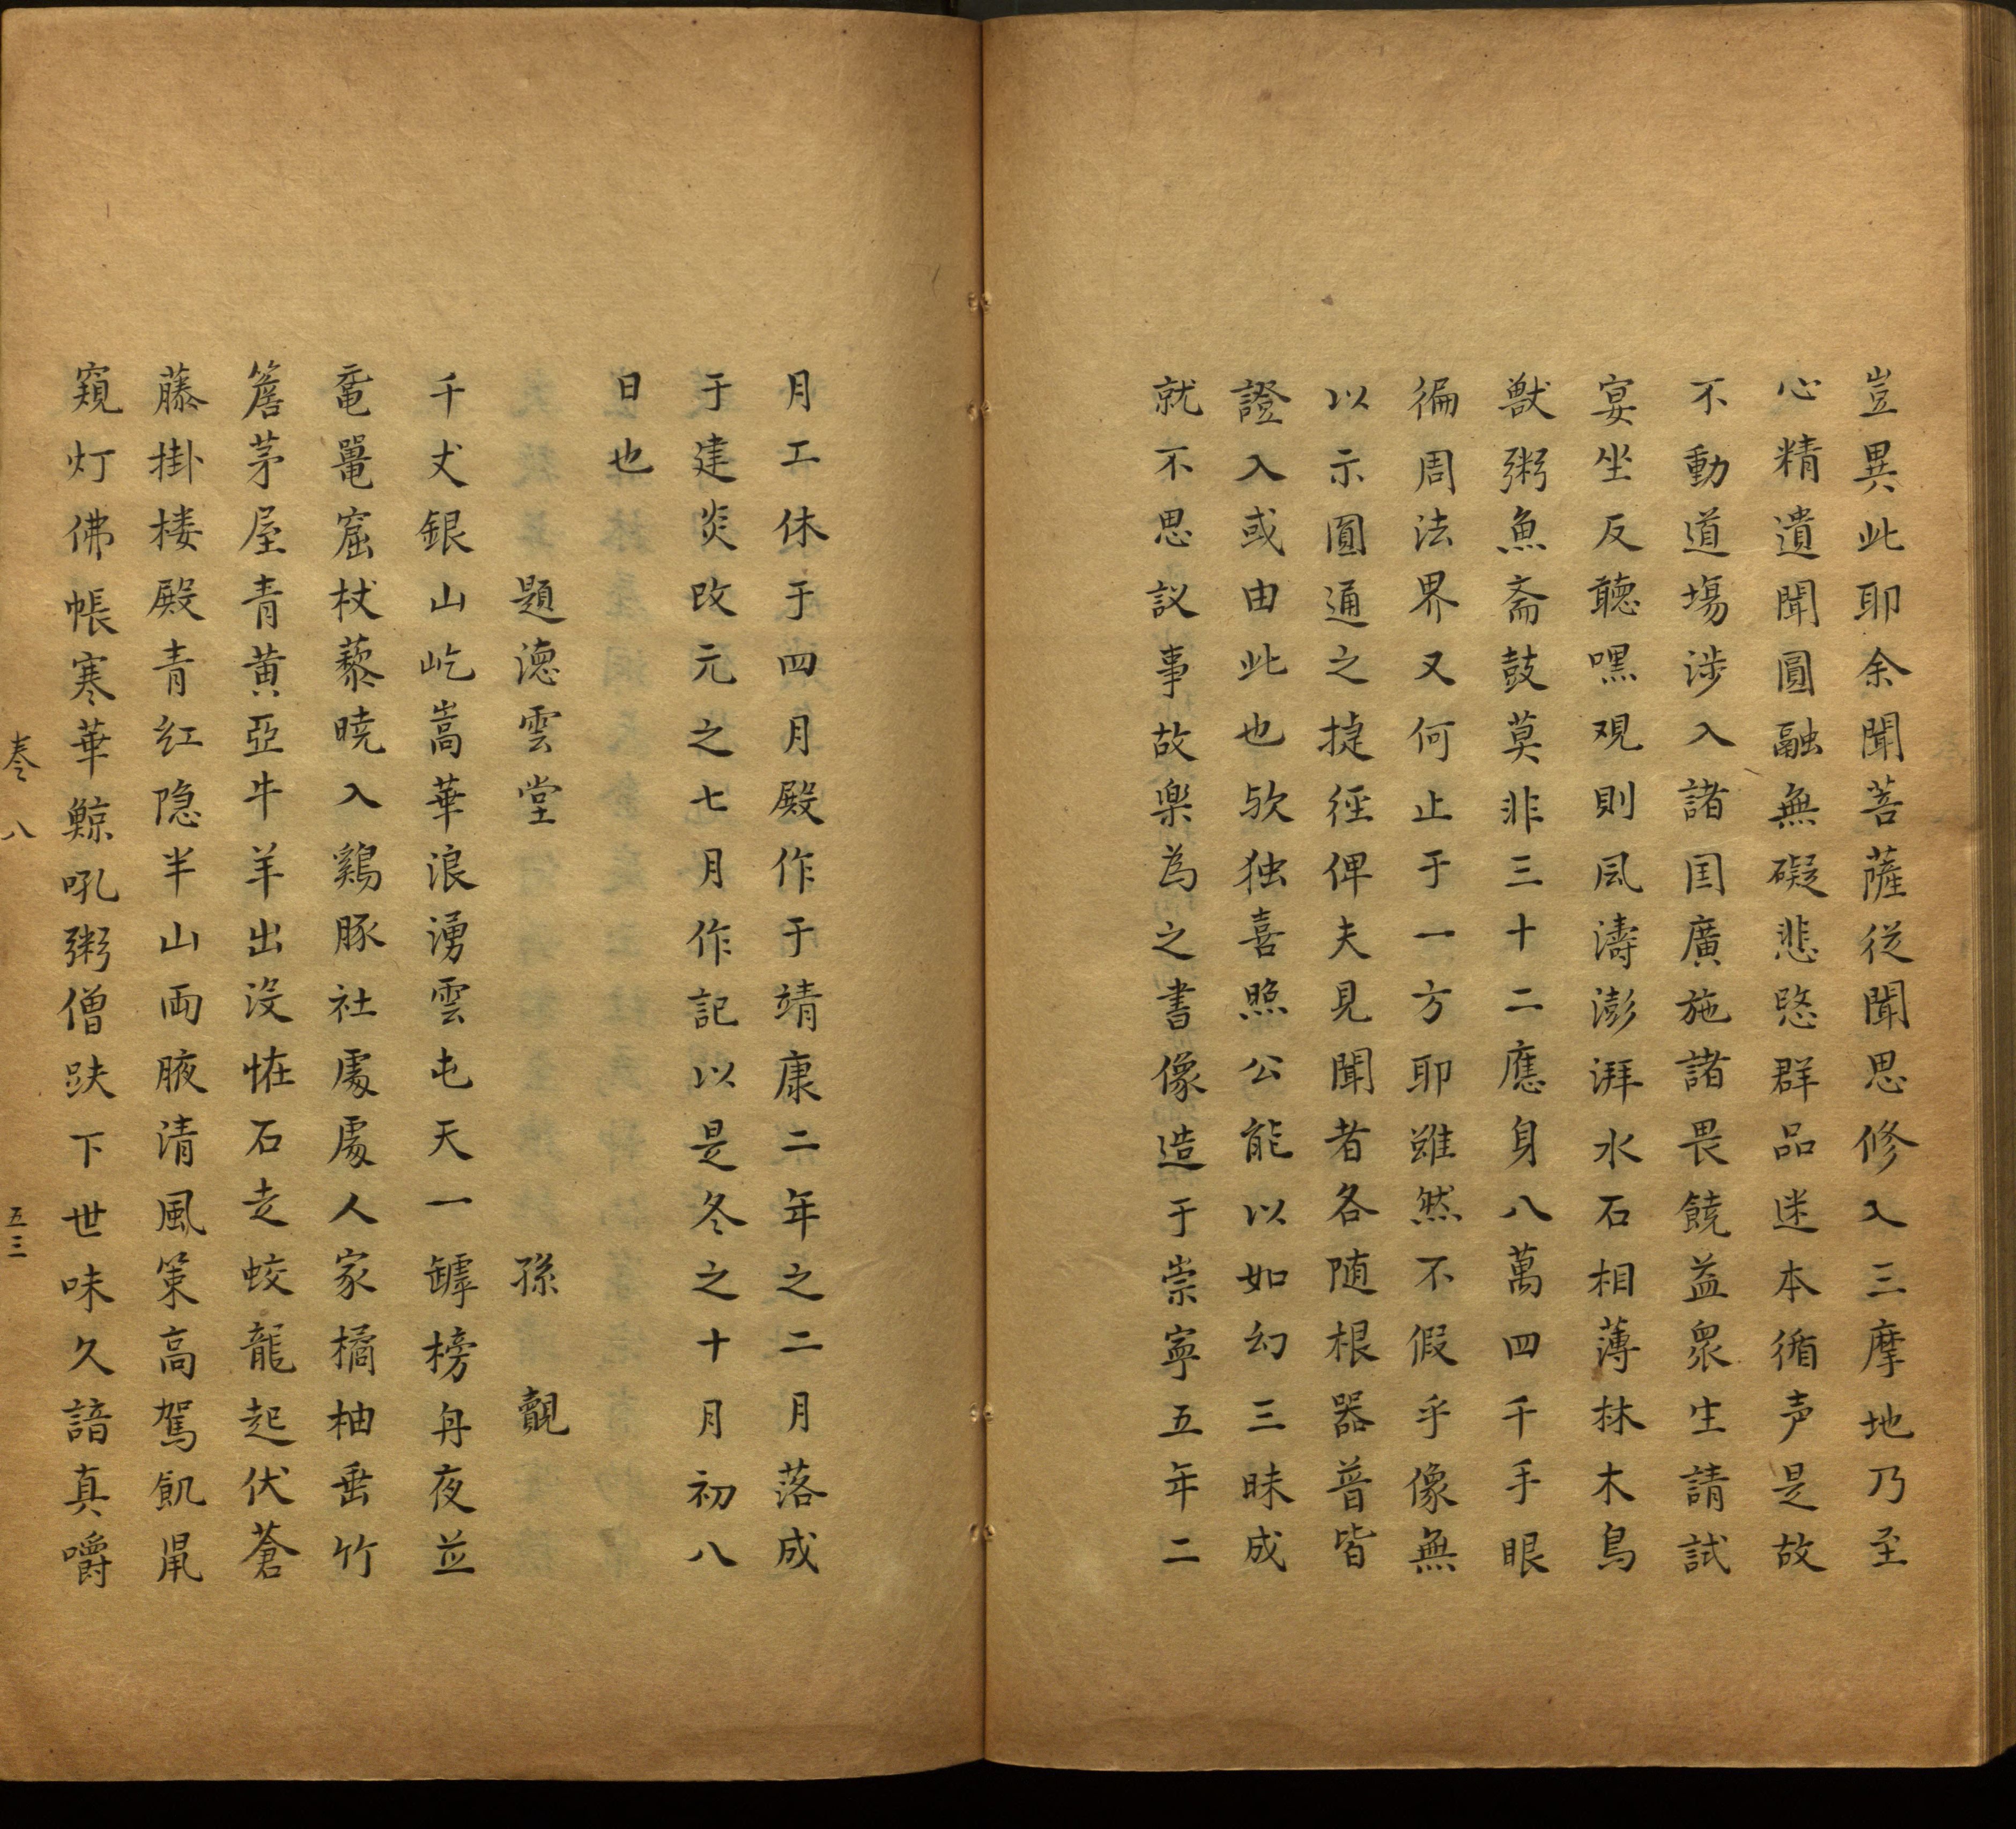 豈異此耶余聞菩薩從聞思修入三摩地乃至
心精遺聞圓融無礙悲愍群品迷本循声是故
不動道場涉入諸国廣施諸畏饒益衆生請試
宴坐反聽嘿观則風濤澎湃水石相薄林木鳥
獸粥魚斋鼓莫非三十二應身八萬四千手眼
徧周法界又何止于一方耶雖然不假乎像無
以示圓通之捷徑俾夫見聞者各随根器普皆
證入或由此也欤独喜照公能以如幻三昧成
就不思議事故樂為之書像造于崇寧五年二
月工休于四月殿作于靖康二年之二月落成
于建炎改元之七月作記以是冬之十月初八
日也
題德雲堂 孫覿
千丈銀山屹嵩華浪湧雲屯天一罅榜舟夜並
黿鼍窟杖藜曉入鷄豚社處處人家橘柚垂竹
簷茅屋青黄亞牛羊出没恠石走蛟龍起伏蒼
藤掛楼殿青红隐半山両腋清風策高駕飢鼠
窺灯佛帳寒華鯨吼粥僧趺下世味久諳真嚼
卷八
五三